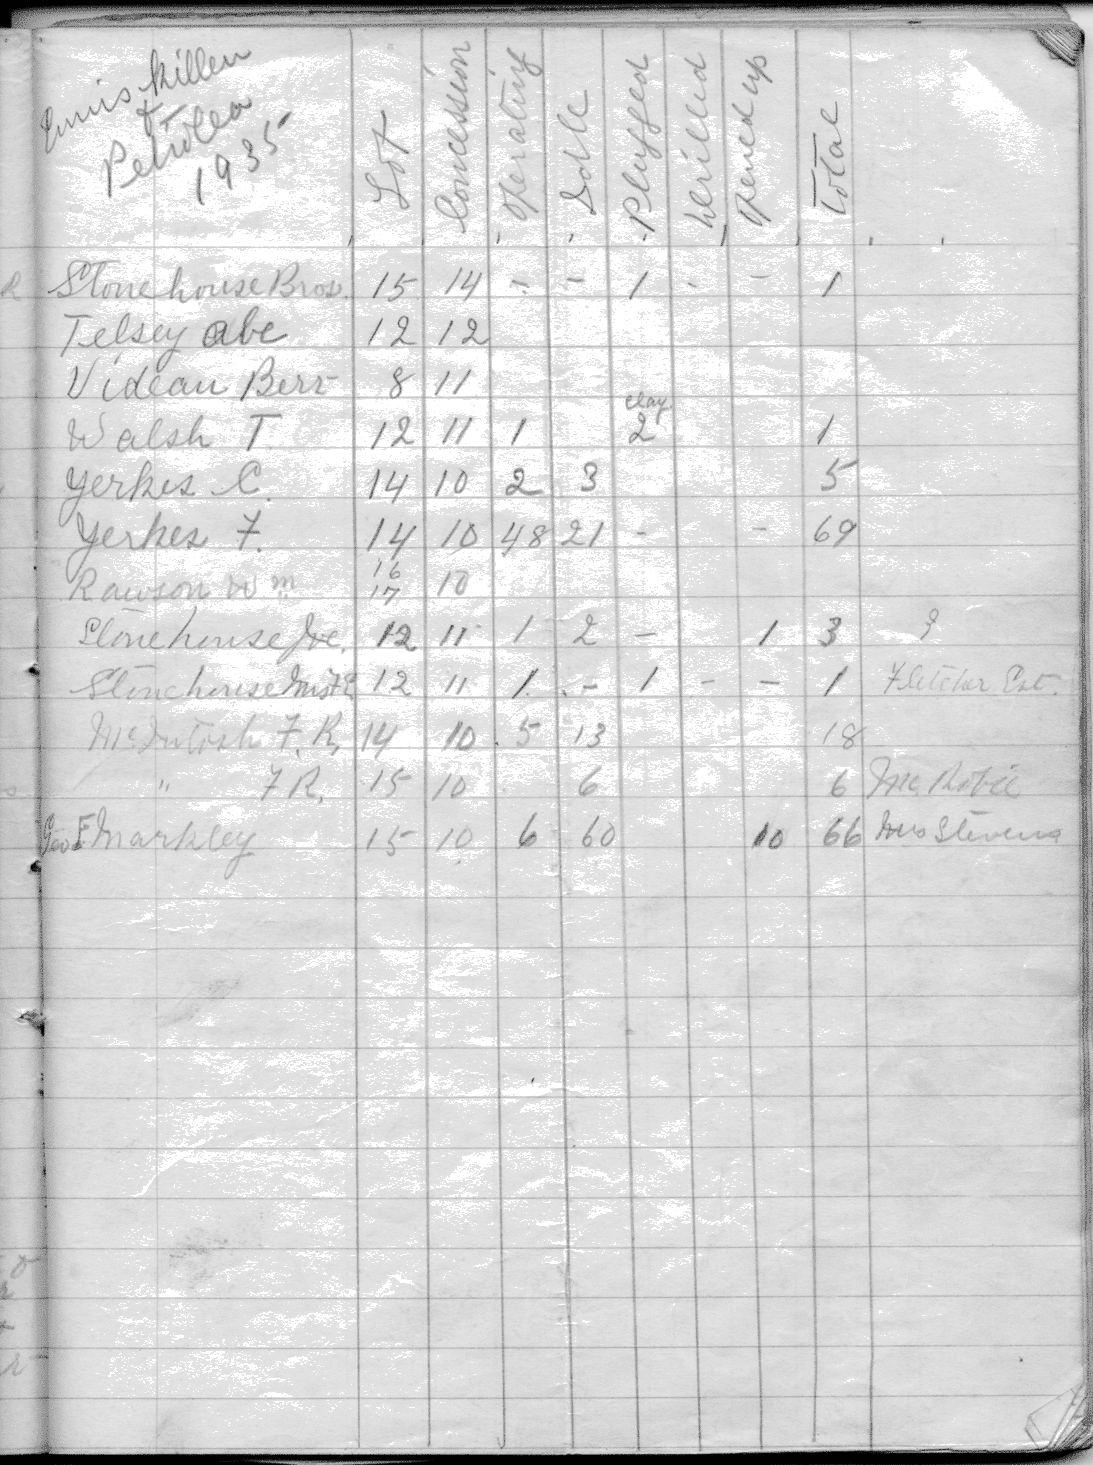 Enniskillen
&
Petrolea
1935
Lot Concession Operating Idle Plugged Drilled Opened up Total
Stonehouse Bros. 15 14 - - 1 - - 1
Telsey abe 12 12
Videan Bert 8 11
clay
Walsh T 12 11 1 2 1
Yerkes C. 14 10 2 3 5
Yerkes F. 14 10 48 21 - - 69
Rawson Wm 16 17 10
Stonehouse Joe. 12 11 1 2 - 1 3 ?
Stonehouse Mrs F E 12 11 1 - 1 - - 1 Fletcher Est.
McIntosh F. R. 14 10 5 13 18
" F R. 15 10 6 6 McRobie
Geo F Markley 15 10 6 60 10 66 Mrs Stevens